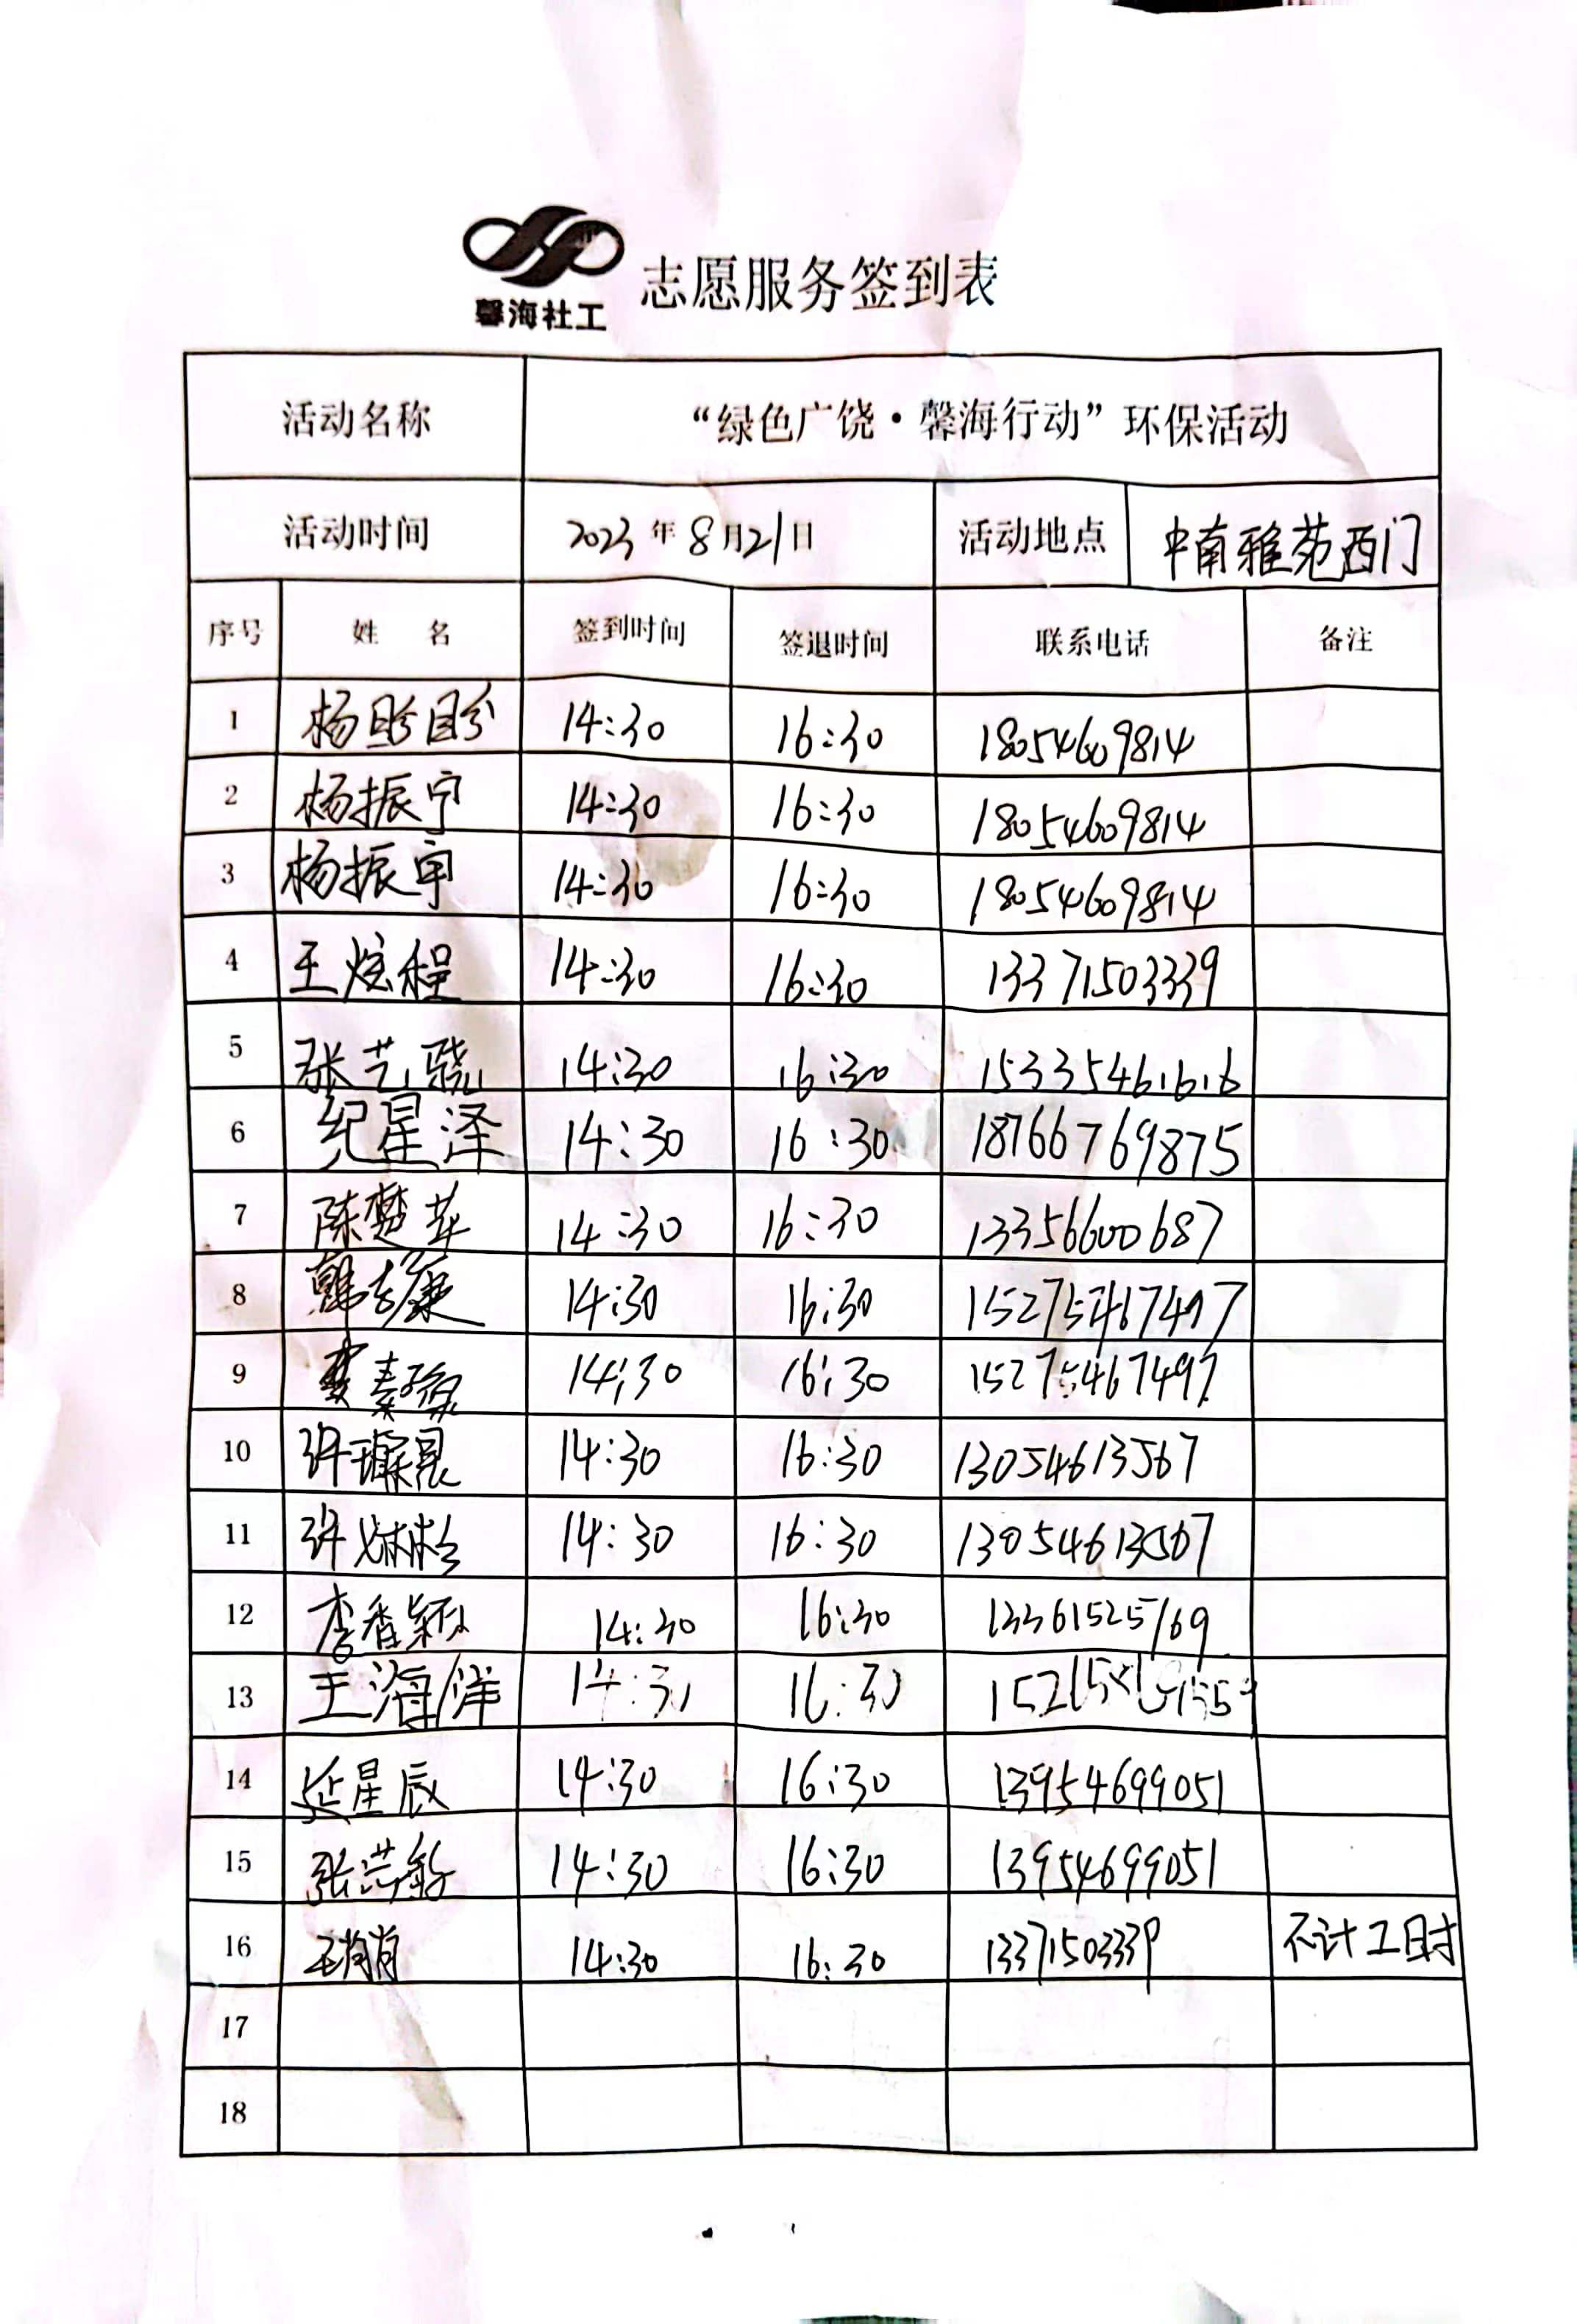 馨海社工
志愿服务签到表
活动名称 “绿色广饶·馨海行动”环保活动
活动时间 2023年8月21日 活动地点 中南雅苑西门
序号 姓 名 签到时间 签退时间 联系电话 备注
1 杨盼盼 14:30 16:30 18054609814
2 杨振宁 14:30 16:30 18054609814
3 杨振宇 14:30 16:30 18054609814
4 王炫程 14:30 16:30 13371503339
5 张艺骁 14:30 16:30 15335461616
6 纪星泽 14:30 16:30 18766769875
7 陈楚苹 14:30 16:30 13356600687
8 韩 康 14:30 16:30
9 14:30 16:30 15275467497
10 许璨晨 14:30 16:30 13054613567
11 许 14:30 16:30 13054613567
12 李香颖 14:30 16:30 13361525769
13 王海洋 14:30 16:30
14 延星辰 14:30 16:30 13954699051
15 张芸 14:30 16:30 13954699051
16 王肖肖 14:30 16:30 13371503339 不计工时
17
18